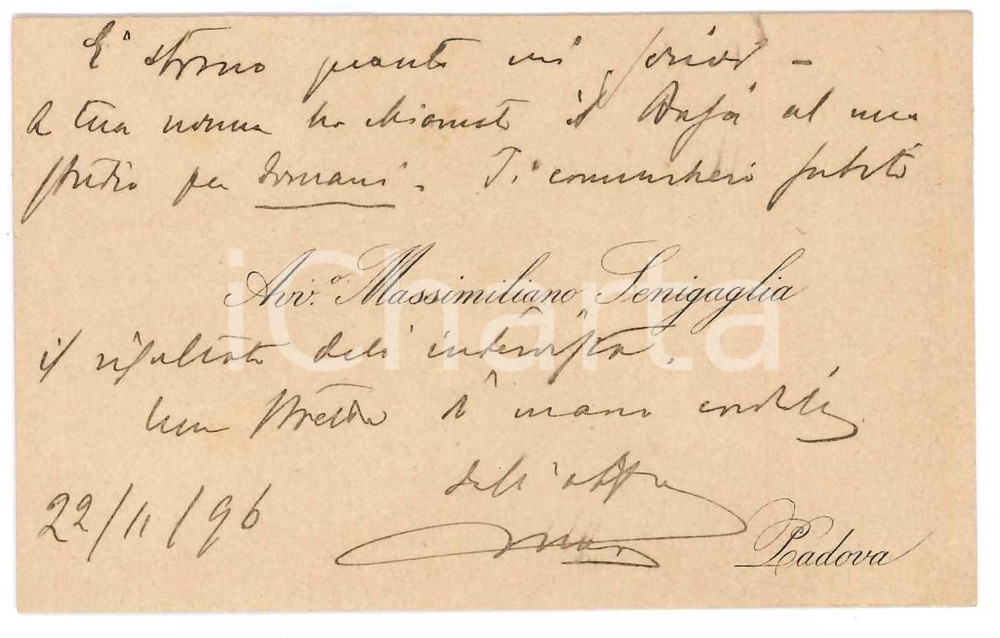 E' strano quanto mi scrivi -
A tua norma ho chiamato il al mio
studio per domani. Ti comunicherò subito
Avv.º Massimiliano Senigaglia
il risultato dell'intervista.
Una stretta di mano cordiale
dell'aff
22/11/96
Padova
iCharta